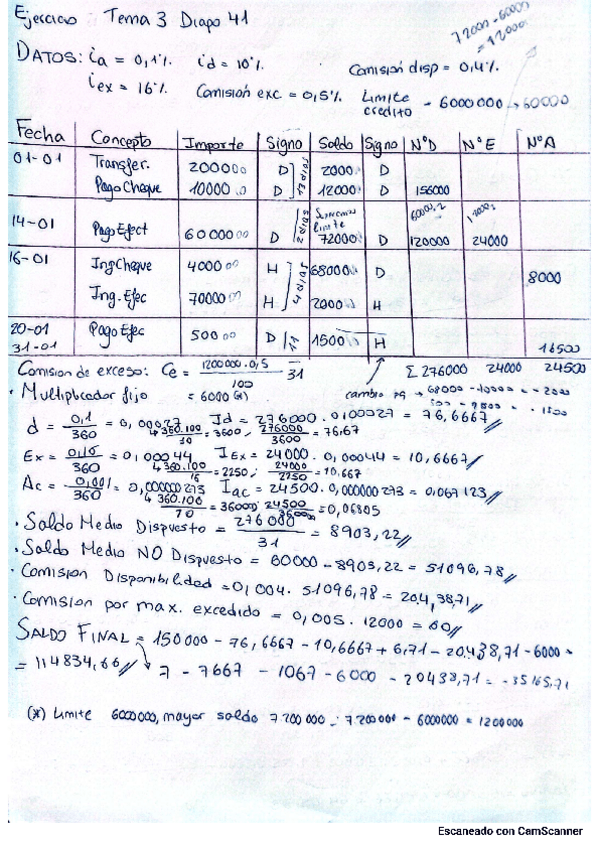 Ejercicio Tema 3 Diapo 41
72000-60000
= 12000
DATOS: ia = 0,1% id = 10% Comisión disp = 0,4%
iex = 16% Comisión exc = 0,5% Limite credito - 6000000 → 60000
Fecha Concepto Importe Signo Saldo Signo NºD NºE NºA
01-01 Transfer. 200000 D 2000 D
Pago Cheque 10000 D 12000 D 156000
14-01 Pago Efect 6000000 D limite 72000 D 120000 24000
60000.2
16-01 Ing Cheque 400000 H 68000 D 8000
Ing. Efec 70000 H 2000 H
20-01 Pago Efec 50000 D 1500 H
31-01 16500
Comision de exceso: Ce = 1200000.0,5 / 100 Σ 276000 24000 24500
· Multiplicador fijo = 6000 (*)
d = 0,1 / 360 = 0,00027 Id = 276000 . 0,00027 = 76,6667
360.100 / 10 = 3600, 276000 / 3600 = 76,67
Ex = 0,16 / 360 = 0,00044 IEx = 24000 . 0,00044 = 10,6667
360.100 / 16 = 2250, 24000 / 2250 = 10,667
Ac = 0,001 / 360 = 0,000000273 Iac = 24500 . 0,000000273 = 0,067123
360.100 / 10 = 36000 24500 / 36000 = 0,06805
· Saldo Medio Dispuesto = 276000 / 31 = 8903,22
· Saldo Medio NO Dispuesto = 60000 - 8903,22 = 51096,78
· Comision Disponibilidad = 0,004 . 51096,78 = 204,38,71
· Comision por max. excedido = 0,005 . 12000 = 60
SALDO FINAL = 150000 - 76,6667 - 10,6667 + 6,71 - 20.438,71 - 6000 =
= 114834,66 7 - 7667 - 1067 - 6000 - 20438,71 = -35165,71
(*) Limite 6000000, mayor saldo 7200000 : 7200000 - 6000000 = 1200000
Escaneado con CamScanner